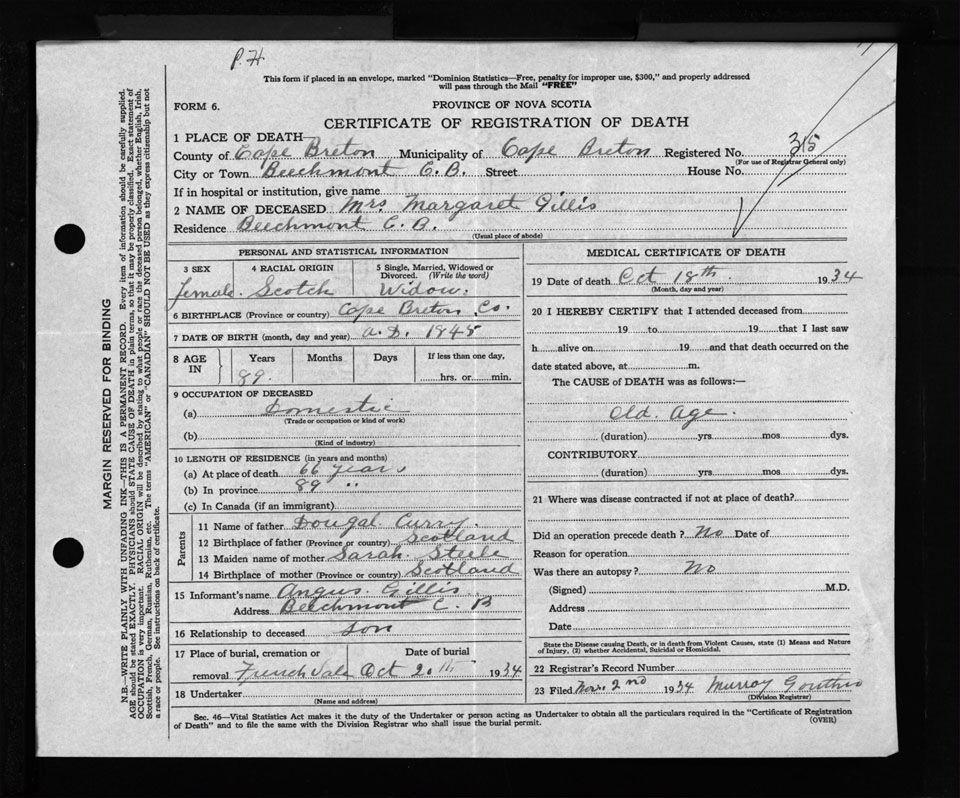 P. H.
This form if placed in an envelope, marked "Dominion Statistics—Free, penalty for improper use, $300," and properly addressed
will pass through the Mail "FREE"
FORM 6.
PROVINCE OF NOVA SCOTIA
CERTIFICATE OF REGISTRATION OF DEATH
1 PLACE OF DEATH—
County of Cape Breton Municipality of Cape Breton Registered No. 315
(For use of Registrar General only)
City or Town Beechmont C.B. Street House No.
If in hospital or institution, give name
2 NAME OF DECEASED Mrs Margaret Gillis
Residence Beechmont C.B.
(Usual place of abode)
PERSONAL AND STATISTICAL INFORMATION
3 SEX 4 RACIAL ORIGIN 5 Single, Married, Widowed or Divorced. (Write the word)
female. Scotch Widow.
6 BIRTHPLACE (Province or country) Cape Breton Co.
7 DATE OF BIRTH (month, day and year) A.D. 1845
8 AGE IN Years Months Days If less than one day,
89. hrs. or min.
9 OCCUPATION OF DECEASED
(a) Domestic
(Trade or occupation or kind of work)
(b)
(Kind of industry)
10 LENGTH OF RESIDENCE (in years and months)
(a) At place of death 66 years
(b) In province 89 "
(c) In Canada (if an immigrant)
Parents
11 Name of father Dougal Curry.
12 Birthplace of father (Province or country) Scotland
13 Maiden name of mother Sarah Steele
14 Birthplace of mother (Province or country) Scotland
15 Informant's name Angus Gillis
Address Beechmont C. B
16 Relationship to deceased son
17 Place of burial, cremation or removal Date of burial
French Vale Oct 20th 1934
18 Undertaker
(Name and address)
MEDICAL CERTIFICATE OF DEATH
19 Date of death Oct 18th. 1934
(Month, day and year)
20 I HEREBY CERTIFY that I attended deceased from
19 to 19 that I last saw
h alive on 19 and that death occurred on the
date stated above, at m.
The CAUSE of DEATH was as follows:—
Old Age.
(duration) yrs mos dys.
CONTRIBUTORY
(duration) yrs. mos. dys.
21 Where was disease contracted if not at place of death?
Did an operation precede death? No Date of
Reason for operation
Was there an autopsy? No
(Signed) M.D.
Address
Date
State the Disease causing Death, or in death from Violent Causes, state (1) Means and Nature
of Injury, (2) whether Accidental, Suicidal or Homicidal.
22 Registrar's Record Number
23 Filed Nov. 2nd 1934 Murray
(Division Registrar)
Sec. 46—Vital Statistics Act makes it the duty of the Undertaker or person acting as Undertaker to obtain all the particulars required in the "Certificate of Registration
of Death" and to file the same with the Division Registrar who shall issue the burial permit.
(OVER)
MARGIN RESERVED FOR BINDING
N.B.—WRITE PLAINLY WITH UNFADING INK—THIS IS A PERMANENT RECORD. Every item of information should be carefully supplied.
AGE should be stated EXACTLY. PHYSICIANS should STATE CAUSE OF DEATH in plain terms, so that it may be properly classified. Exact statement of
OCCUPATION is very important. RACIAL ORIGIN will be described by stating to what people or race the deceased person belonged, whether English, Irish,
Scottish, French, German, Russian, Ruthenian, etc. The terms "AMERICAN" or "CANADIAN" SHOULD NOT BE USED as they express citizenship but not
a race or people. See instructions on back of certificate.